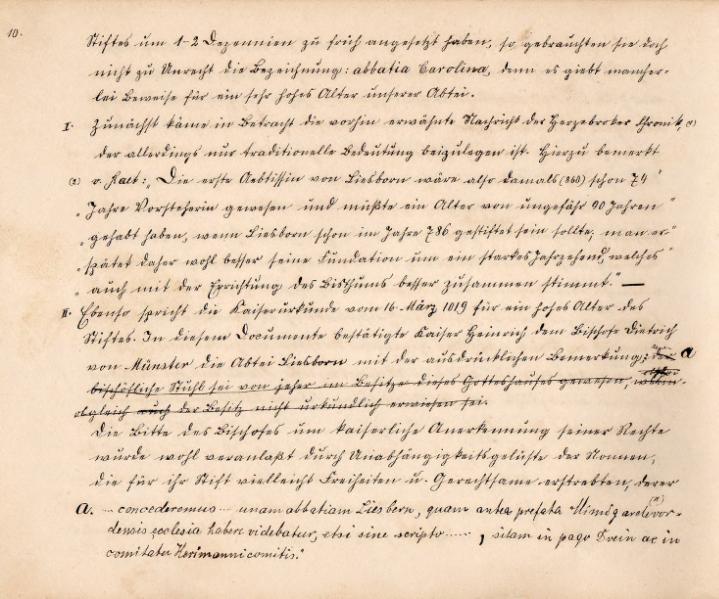 10.
Stiftes um 1-2 Dezennien zu früh angesetzt haben, so gebrauchten sie doch
nicht zu Unrecht die Bezeichnung: abbatia Carolina, denn es giebt mancher-
lei Beweise für ein sehr hohes Alter unserer Abtei.
I. Zunächst käme in Betracht die vorhin erwähnte Nachricht der Herzebroker Chronik,
der allerdings nur traditionelle Bedeutung beizulegen ist. Hierzu bemerkt
(2) v. Kalt: „Die erste Aebtissin von Liesborn wäre also damals (860) schon 74"
„Jahre Vorsteherin gewesen und müßte ein Alter von ungefähr 90 Jahren"
„gehabt haben, wenn Liesborn schon im Jahre 786 gestiftet sein sollte; man"
„spätet daher wohl besser seine Fundation um ein starkes Jahrzehend, welches"
„auch mit der Errichtung des Bisthums besser zusammen stimmt." —
II. Ebenso spricht die Kaiserurkunde vom 16. März 1019 für ein hohes Alter des
Stiftes. In diesem Documente bestätigte Kaiser Heinrich dem Bischofe Dietrich
von Münster die Abtei Liesborn mit der ausdrücklichen Bemerkung; a
bischöfliche Stuhl sei von jeher im Besitze dieses Gotteshauses gewesen,
obgleich auch der Besitz nicht urkundlich erwiesen sei.
Die Bitte des Bischofes um kaiserliche Anerkennung seiner Rechte
wurde wohl veranlaßt durch Unabhängigkeitsgelüste der Nonnen,
die für ihr Stift vielleicht Freiheiten u. Gerechtsame erstrebten, derer
a. ... concederemus ... unam abbatiam Liesbern, quam antea prefata Mimigardevor-
densis ecclesia habere videbatur, etsi sine scripto ......, sitam in pago Drein ac in
comitatu Herimanni comitis."